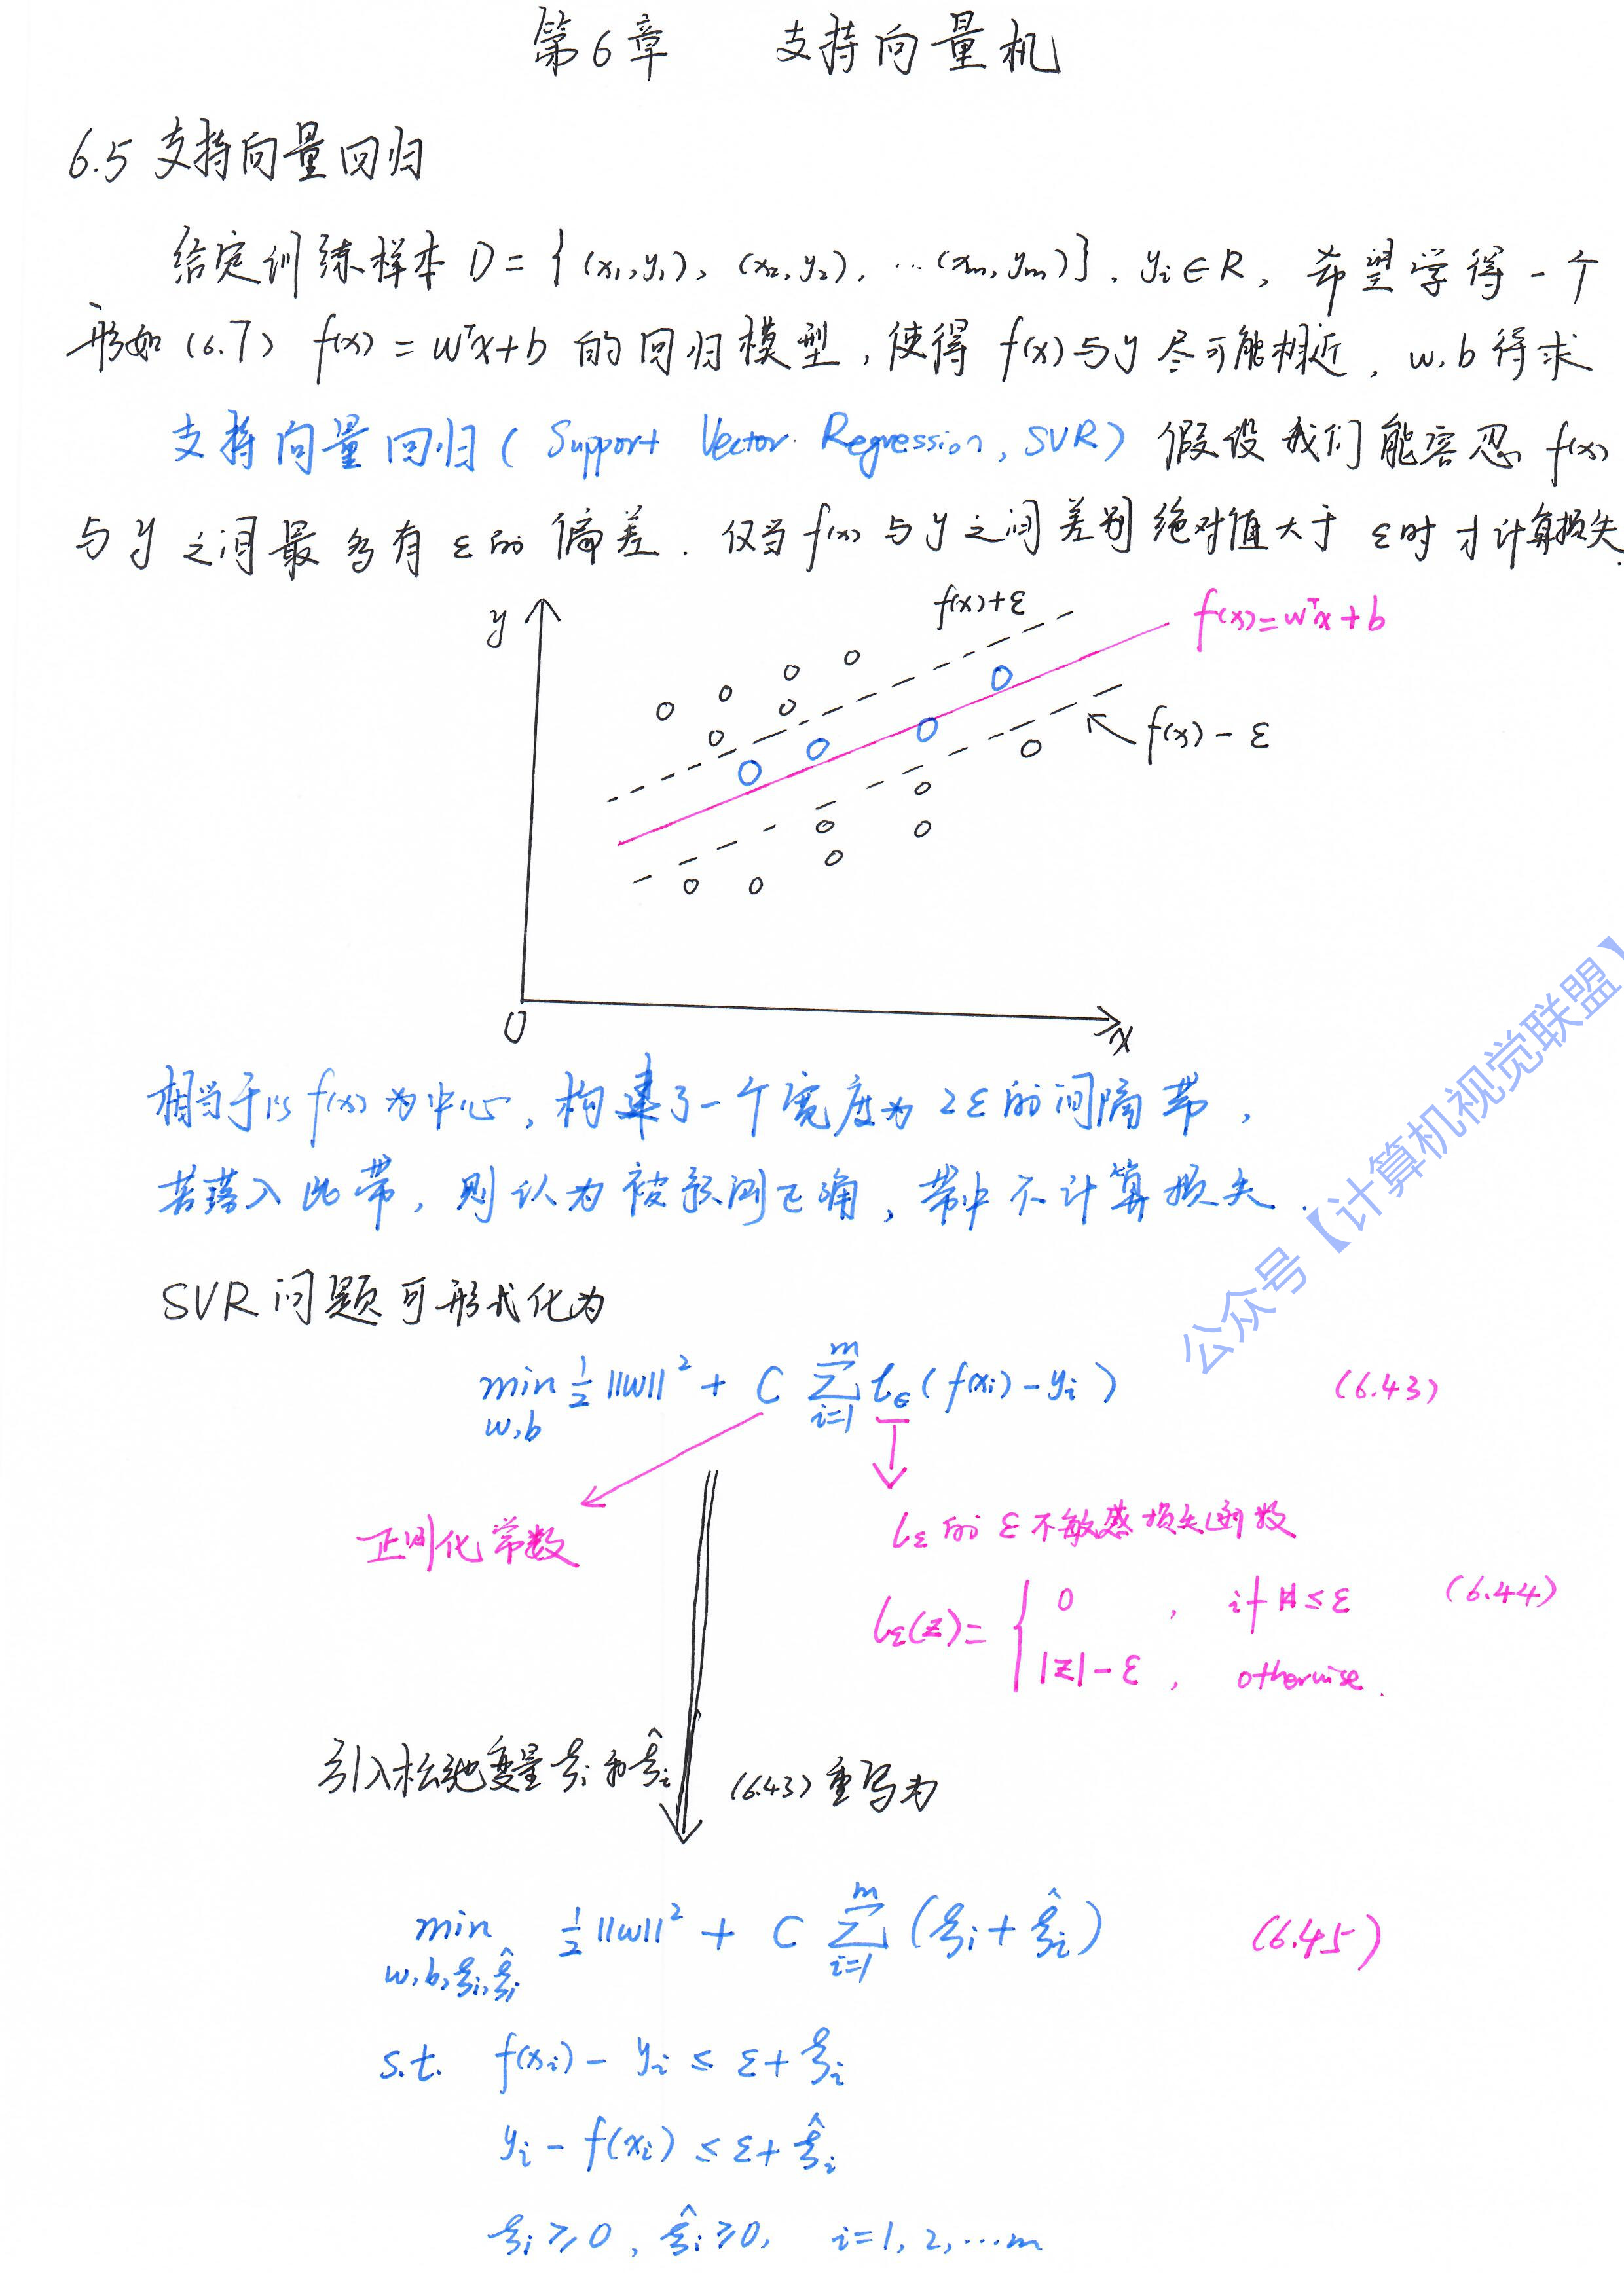 第6章 支持向量机
6.5 支持向量回归
给定训练样本 D = {(x₁,y₁), (x₂,y₂), …(xₘ,yₘ)}, yᵢ∈R, 希望学得一个
形如 (6.7) f(x) = wᵀx+b 的回归模型, 使得 f(x)与y 尽可能相近, w,b 待求
支持向量回归 (Support Vector Regression, SVR) 假设我们能容忍 f(x)
与 y 之间最多有 ε 的偏差. 仅当 f(x) 与 y 之间差别绝对值大于 ε时才计算损失.
y
f(x)+ε
f(x)=wᵀx+b
f(x)-ε
0
x
相当于以 f(x) 为中心, 构建了一个宽度为 2ε 的间隔带,
若落入此带, 则认为被预测正确, 带中不计算损失.
SVR 问题可形式化为
min_{w,b} ½||w||² + C ∑_{i=1}^{m} ℓ_ε(f(xᵢ)-yᵢ) (6.43)
正则化常数
ℓ_ε 的 ε不敏感损失函数
ℓ_ε(z) = { 0 , if |z| ≤ ε (6.44)
|z|-ε , otherwise.
引入松弛变量 ξᵢ 和 ξ̂ᵢ
(6.43) 重写为
min_{w,b,ξᵢ,ξ̂ᵢ} ½||w||² + C ∑_{i=1}^{m} (ξᵢ + ξ̂ᵢ) (6.45)
s.t. f(xᵢ) - yᵢ ≤ ε + ξᵢ
yᵢ - f(xᵢ) ≤ ε + ξ̂ᵢ
ξᵢ ≥ 0, ξ̂ᵢ ≥ 0, i=1, 2, …m
公众号【计算机视觉联盟】